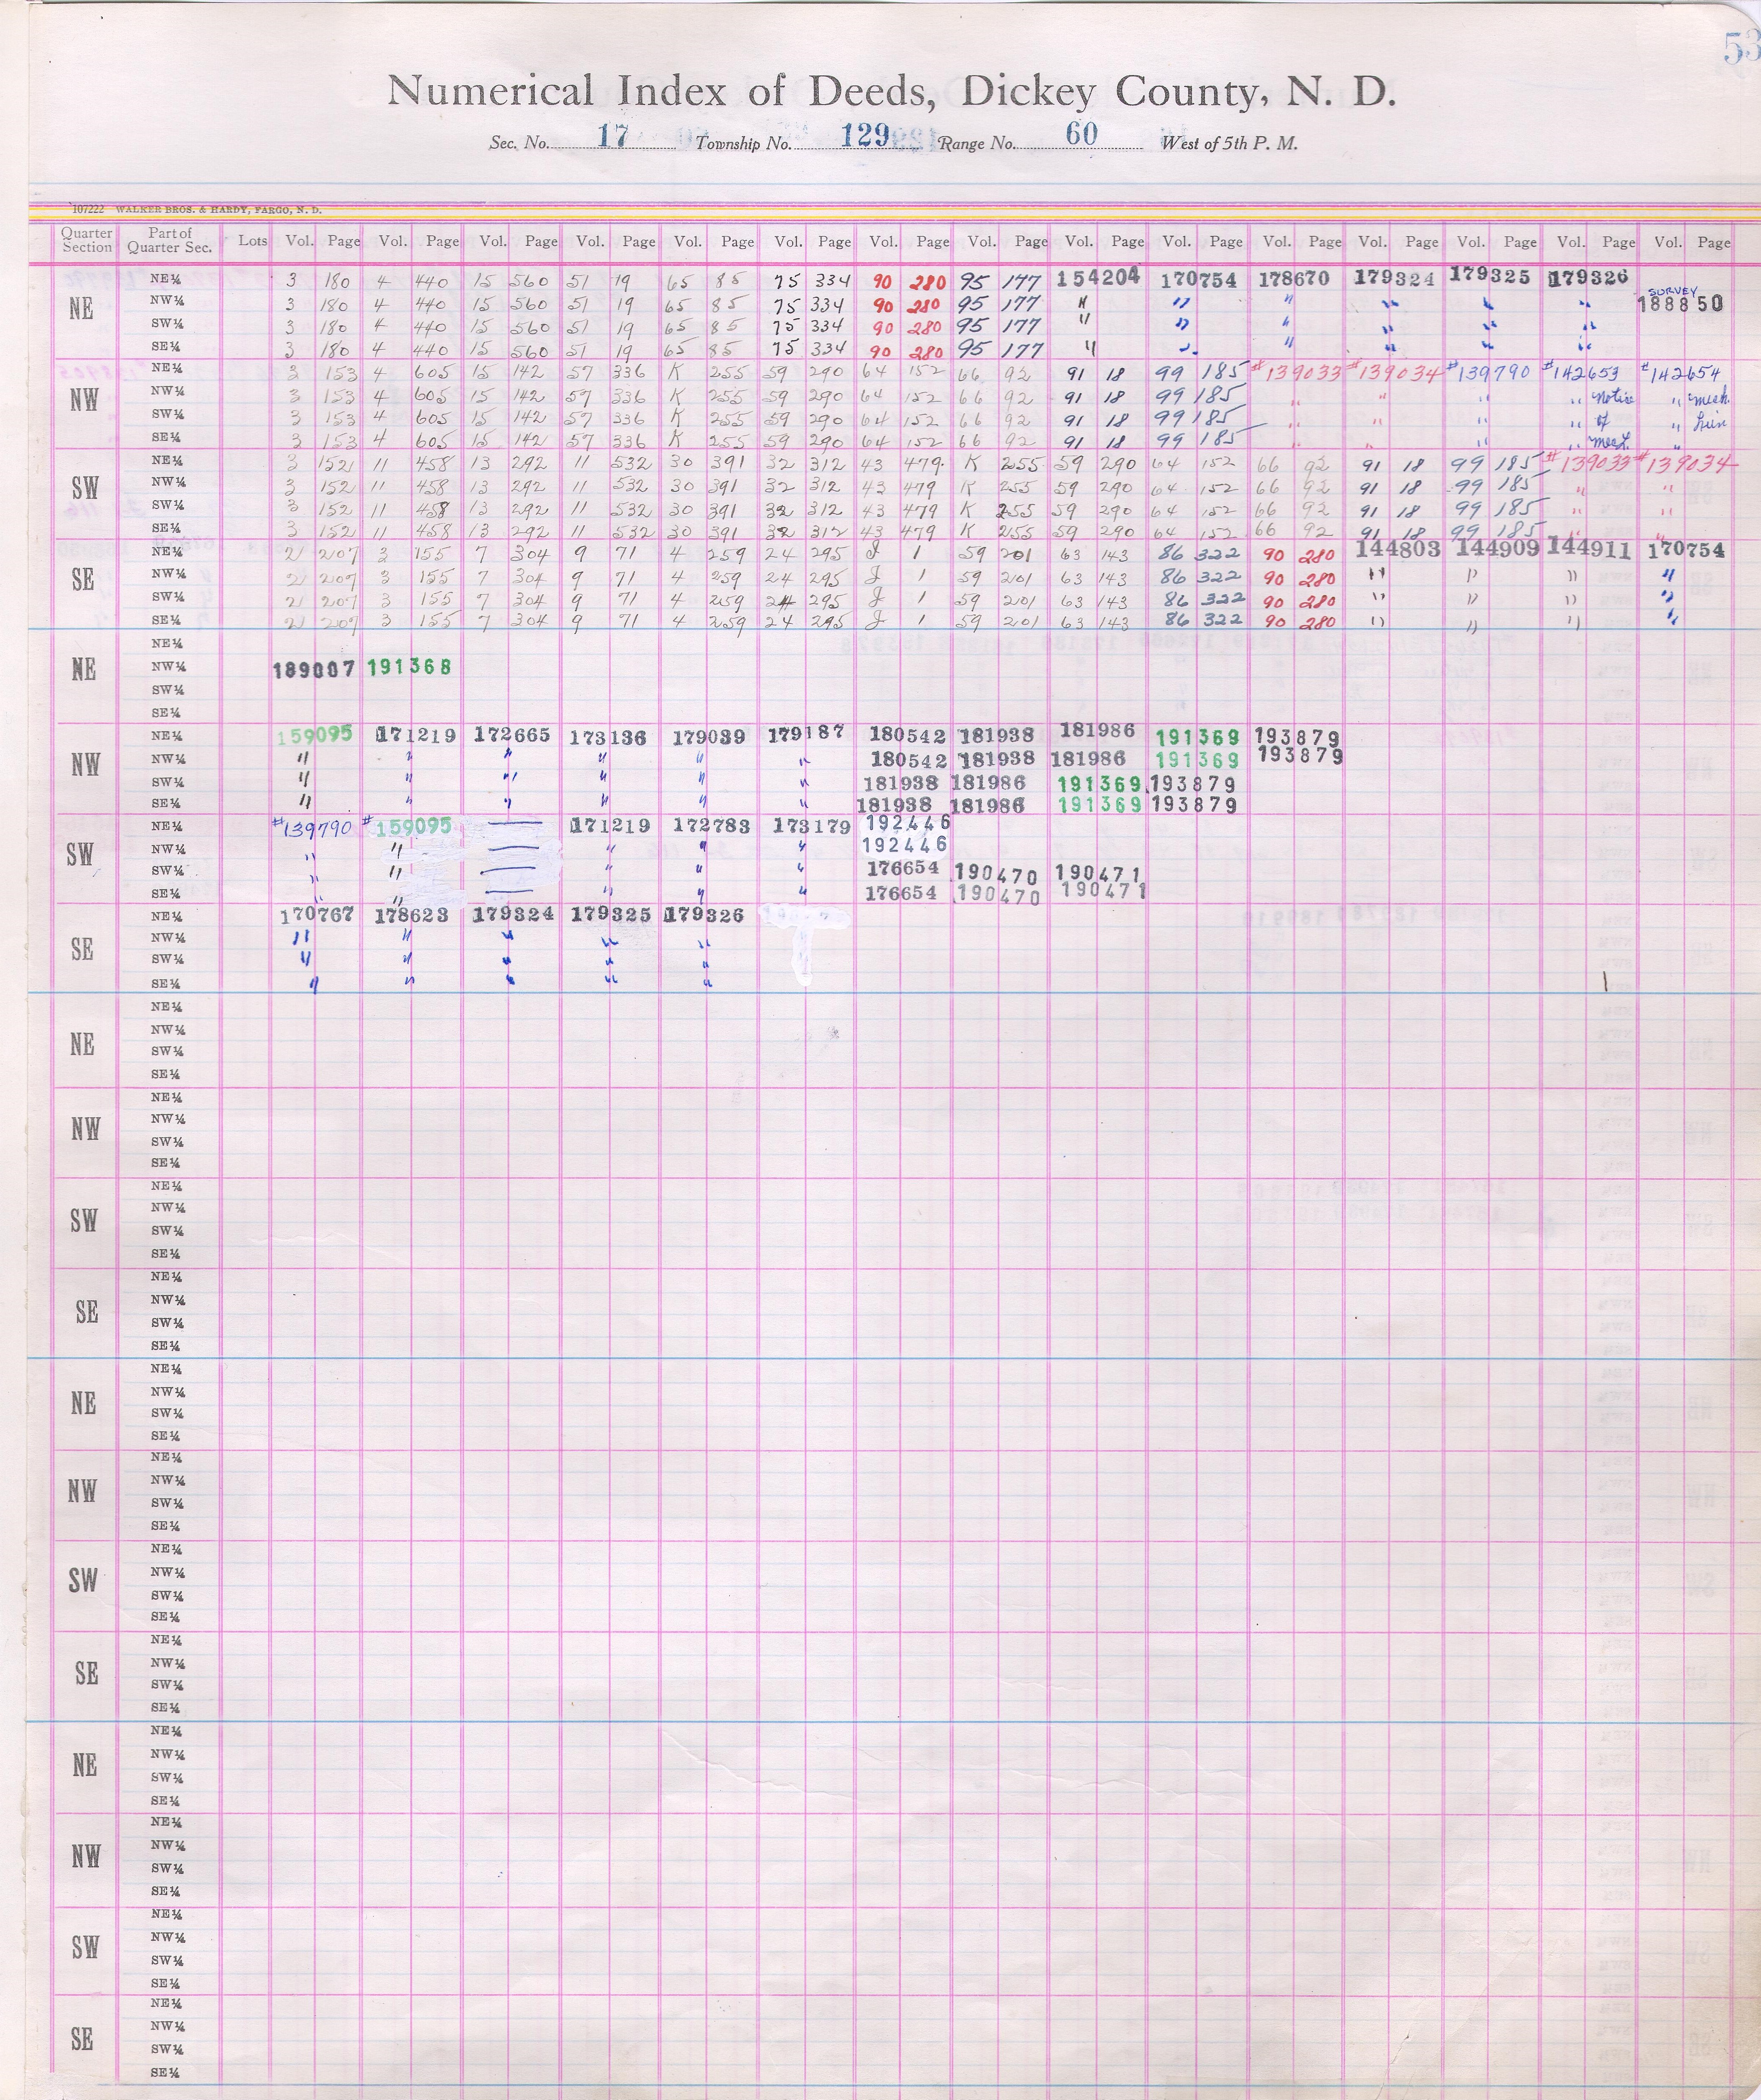 53
Numerical Index of Deeds, Dickey County, N. D.
Sec. No. 17 Township No. 129 Range No. 60 West of 5th P. M.
107222 WALKER BROS. & HARDY, FARGO, N. D.
Quarter Section Part of Quarter Sec. Lots Vol. Page Vol. Page Vol. Page Vol. Page Vol. Page Vol. Page Vol. Page Vol. Page Vol. Page Vol. Page Vol. Page Vol. Page Vol. Page Vol. Page Vol. Page
NE
NE¼ 3 180 4 440 15 560 51 19 65 85 75 334 90 280 95 177 154204 170754 178670 179324 179325 179326
SURVEY
NW¼ 3 180 4 440 15 560 51 19 65 85 75 334 90 280 95 177 " " " " " " 188850
SW¼ 3 180 4 440 15 560 51 19 65 85 75 334 90 280 95 177 " " " " " "
SE¼ 3 180 4 440 15 560 51 19 65 85 75 334 90 280 95 177 " " " " " "
NW
NE¼ 3 153 4 605 15 142 57 336 K 255 59 290 64 152 66 92 91 18 99 185 #139033 #139034 #139790 #142653 #142654
NW¼ 3 153 4 605 15 142 57 336 K 255 59 290 64 152 66 92 91 18 99 185 " " " " Notice " mech.
SW¼ 3 153 4 605 15 142 57 336 K 255 59 290 64 152 66 92 91 18 99 185 " " " " of " Lien
SE¼ 3 153 4 605 15 142 57 336 K 255 59 290 64 152 66 92 91 18 99 185 " " " " "
SW
NE¼ 3 152 11 458 13 292 11 532 30 391 32 312 43 479 K 255 59 290 64 152 66 92 91 18 99 185 #139033 #139034
NW¼ 3 152 11 458 13 292 11 532 30 391 32 312 43 479 K 255 59 290 64 152 66 92 91 18 99 185 " "
SW¼ 3 152 11 458 13 292 11 532 30 391 32 312 43 479 K 255 59 290 64 152 66 92 91 18 99 185 " "
SE¼ 3 152 11 458 13 292 11 532 30 391 32 312 43 479 K 255 59 290 64 152 66 92 91 18 99 185 " "
SE
NE¼ 21 207 3 155 7 304 9 71 4 259 24 295 J 1 59 201 63 143 86 322 90 280 144803 144909 144911 170754
NW¼ 21 207 3 155 7 304 9 71 4 259 24 295 J 1 59 201 63 143 86 322 90 280 " " " "
SW¼ 21 207 3 155 7 304 9 71 4 259 24 295 J 1 59 201 63 143 86 322 90 280 " " " "
SE¼ 21 207 3 155 7 304 9 71 4 259 24 295 J 1 59 201 63 143 86 322 90 280 " " " "
NE
NE¼
NW¼ 189007 191368
SW¼
SE¼
NW
NE¼ 159095 171219 172665 173136 179039 179187 180542 181938 181986 191369 193879
NW¼ " " " " " " 180542 181938 181986 191369 193879
SW¼ " " " " " " 181938 181986 191369 193879
SE¼ " " " " " " 181938 181986 191369 193879
SW
NE¼ #139790 #159095 — 171219 172783 173179 192446
NW¼ " " — " " " 192446
SW¼ " " — " " " 176654 190470 190471
SE¼ " " — " " " 176654 190470 190471
SE
NE¼ 170767 178623 179324 179325 179326
NW¼ " " " " "
SW¼ " " " " "
SE¼ " " " " "
NE
NE¼
NW¼
SW¼
SE¼
NW
NE¼
NW¼
SW¼
SE¼
SW
NE¼
NW¼
SW¼
SE¼
SE
NE¼
NW¼
SW¼
SE¼
NE
NE¼
NW¼
SW¼
SE¼
NW
NE¼
NW¼
SW¼
SE¼
SW
NE¼
NW¼
SW¼
SE¼
SE
NE¼
NW¼
SW¼
SE¼
NE
NE¼
NW¼
SW¼
SE¼
NW
NE¼
NW¼
SW¼
SE¼
SW
NE¼
NW¼
SW¼
SE¼
SE
NE¼
NW¼
SW¼
SE¼